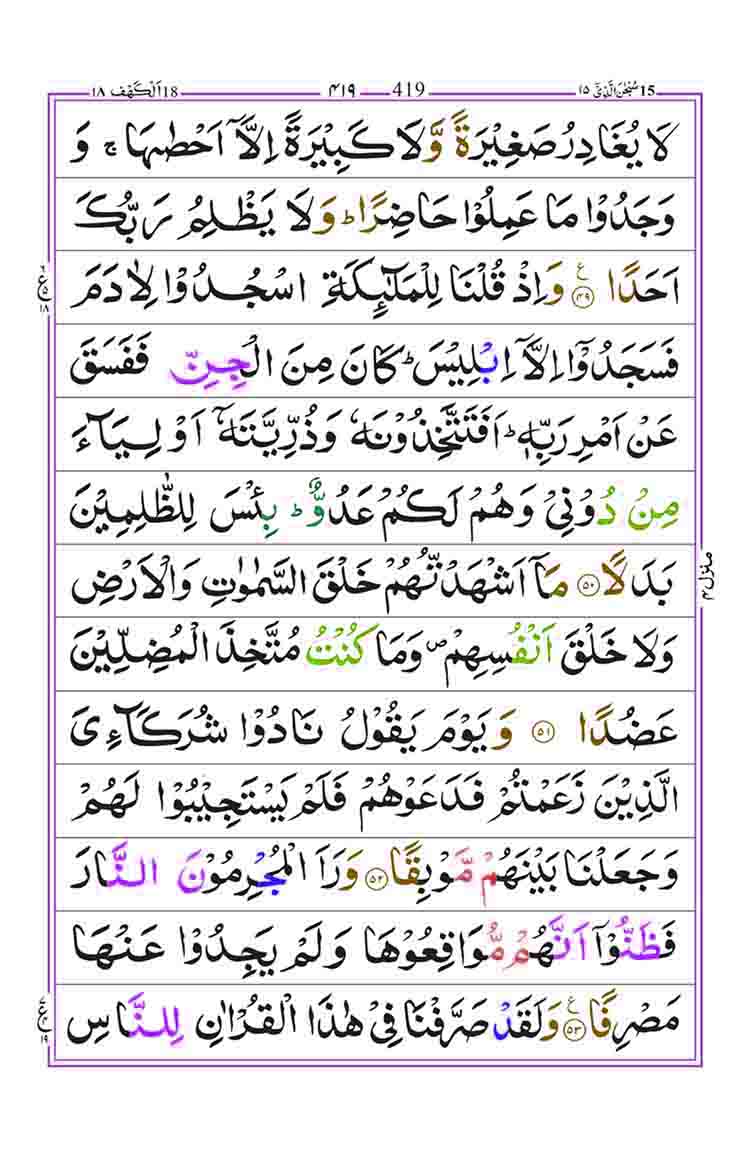 15 سُبْحٰنَ الَّذِیْۤ ۱۵ 419 ۴۱۹ 18 اَلْکَهْف ۱۸
لَا يُغَادِرُ صَغِيْرَةً وَّلَا كَبِيْرَةً اِلَّاۤ اَحْصٰىهَا ۚ وَ
وَجَدُوْا مَا عَمِلُوْا حَاضِرًا ؕ وَلَا يَظْلِمُ رَبُّكَ
اَحَدًا ﴿۴۹﴾ ع وَاِذْ قُلْنَا لِلْمَلٰٓئِكَةِ اسْجُدُوْا لِاٰدَمَ
ع ۵ ۱۸
فَسَجَدُوْۤا اِلَّاۤ اِبْلِيْسَ ؕ كَانَ مِنَ الْجِنِّ فَفَسَقَ
عَنْ اَمْرِ رَبِّهٖ ؕ اَفَتَتَّخِذُوْنَهٗ وَذُرِّيَّتَهٗۤ اَوْلِيَآءَ
مِنْ دُوْنِىْ وَهُمْ لَكُمْ عَدُوٌّ ؕ بِئْسَ لِلظّٰلِمِيْنَ
بَدَلًا ﴿۵۰﴾ مَاۤ اَشْهَدْتُّهُمْ خَلْقَ السَّمٰوٰتِ وَالْاَرْضِ
منزل ۴
وَلَا خَلْقَ اَنْفُسِهِمْ ۪ وَمَا كُنْتُ مُتَّخِذَ الْمُضِلِّيْنَ
عَضُدًا ﴿۵۱﴾ وَيَوْمَ يَقُوْلُ نَادُوْا شُرَكَآءِىَ
الَّذِيْنَ زَعَمْتُمْ فَدَعَوْهُمْ فَلَمْ يَسْتَجِيْبُوْا لَهُمْ
وَجَعَلْنَا بَيْنَهُمْ مَّوْبِقًا ﴿۵۲﴾ وَرَاَ الْمُجْرِمُوْنَ النَّارَ
فَظَنُّوْۤا اَنَّهُمْ مُّوَاقِعُوْهَا وَلَمْ يَجِدُوْا عَنْهَا
مَصْرِفًا ﴿۵۳﴾ ع وَلَقَدْ صَرَّفْنَا فِىْ هٰذَا الْقُرْاٰنِ لِلنَّاسِ
ع ۱۹